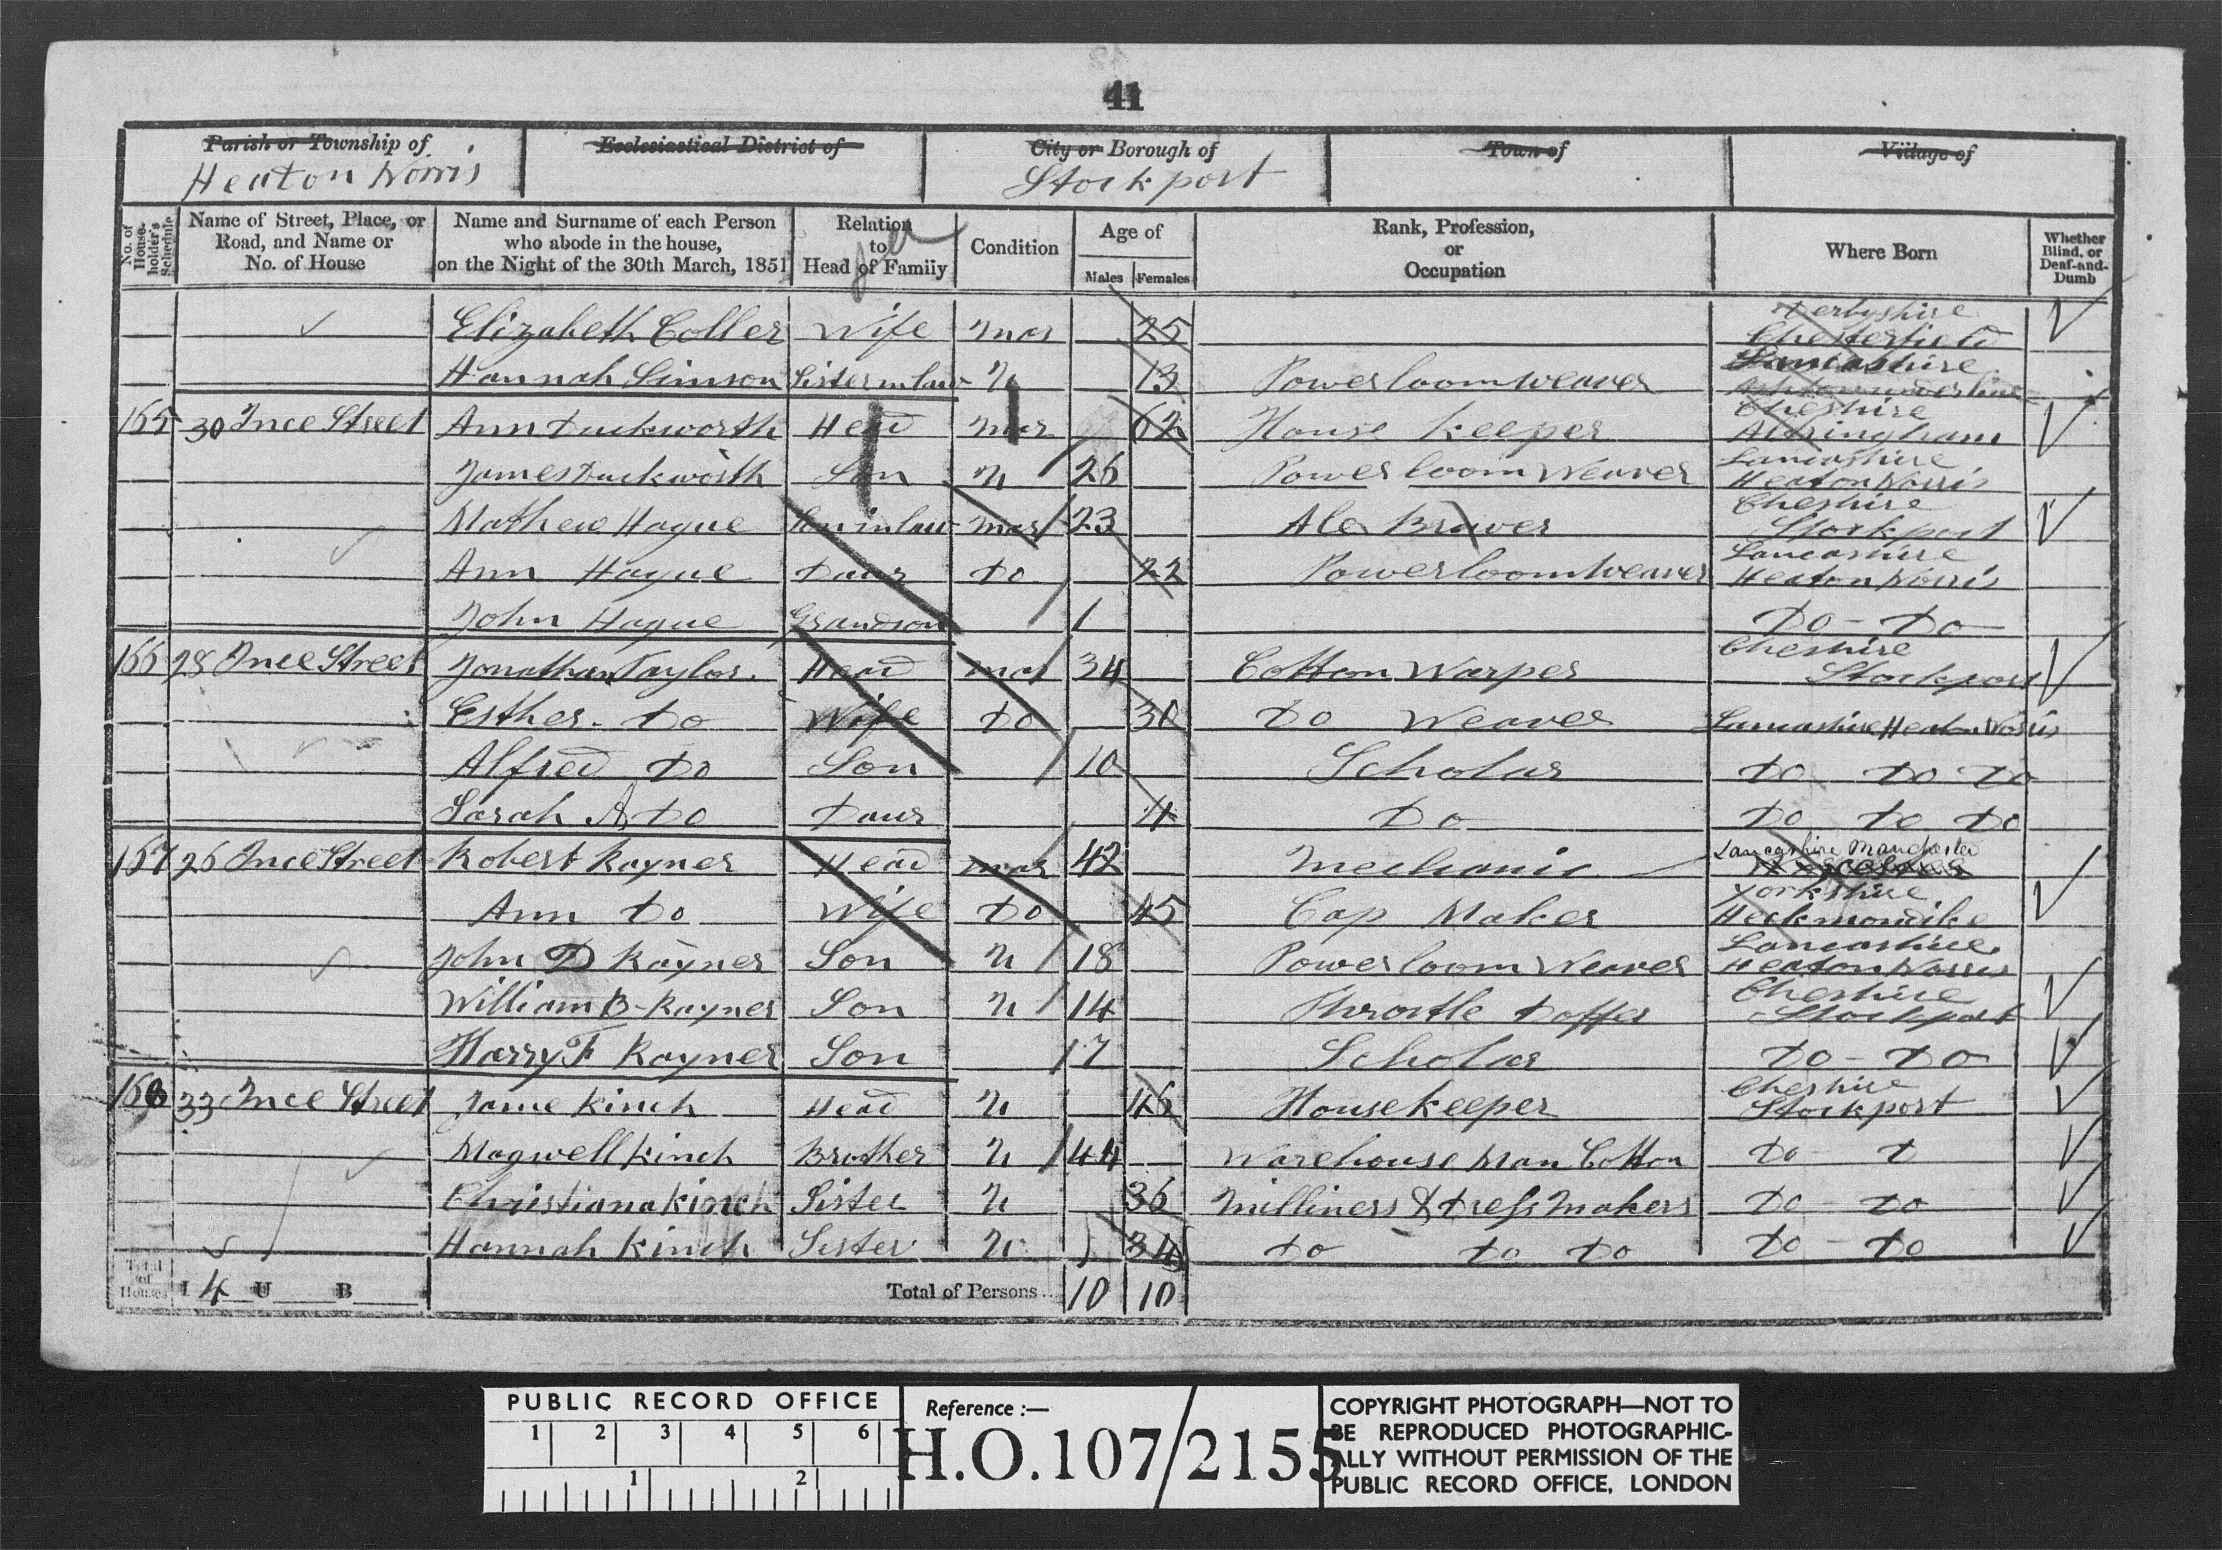 41
Parish or Township of
Heaton Norris
Ecclesiastical District of
City or Borough of
Stockport
Town of
Village of
No. of House-holder's Schedule
Name of Street, Place, or Road, and Name or No. of House
Name and Surname of each Person who abode in the house, on the Night of the 30th March, 1851
Relation to Head of Family
Condition
Age of
Males Females
Rank, Profession, or Occupation
Where Born
Whether Blind, or Deaf-and-Dumb
Elizabeth Coller Wife mar 25 Derbyshire Chesterfield
Hannah Simson Sister in law U 13 Powerloom weaver Lancashire Ashton under line
165 30 Ince Street Ann Duckworth Head mar 62 House keeper Cheshire Altringham
James Duckworth Son U 26 Power loom Weaver Lancashire Heaton Norris
Mathew Hague Son in law mar 23 Ale Brewer Cheshire Stockport
Ann Hague Daur Do 22 Powerloom Weaver Lancashire Heaton Norris
John Hague Grandson 1 Do - Do
166 28 Ince Street Jonathan Taylor Head mar 34 Cotton Warper Cheshire Stockport
Esther Do Wife Do 30 Do Weaver Lancashire Heaton Norris
Alfred Do Son 10 Scholar Do Do Do
Sarah A Do Daur 4 Do Do Do Do
167 26 Ince Street Robert Rayner Head mar 42 Mechanic Lancashire Manchester
Ann Do Wife Do 45 Cap Maker Yorkshire Heckmondike
John D Rayner Son U 18 Power loom Weaver Lancashire Heaton Norris
William B Rayner Son U 14 Throstle Doffer Cheshire Stockport
Harry F Rayner Son 7 Scholar Do - Do
168 33 Ince Street Jane Kinch Head U 46 Housekeeper Cheshire Stockport
Magwell Kinch Brother U 44 Warehouse Man Cotton Do D
Christiana Kinch Sister U 36 Milliners & Dress Makers Do - Do
Hannah Kinch Sister U 34 Do Do Do Do - Do
Total of Houses I 4 U B Total of Persons.. 10 10
PUBLIC RECORD OFFICE
1 2 3 4 5 6
1 2
Reference :—
H.O. 107/2155
COPYRIGHT PHOTOGRAPH—NOT TO
BE REPRODUCED PHOTOGRAPHIC-
ALLY WITHOUT PERMISSION OF THE
PUBLIC RECORD OFFICE, LONDON